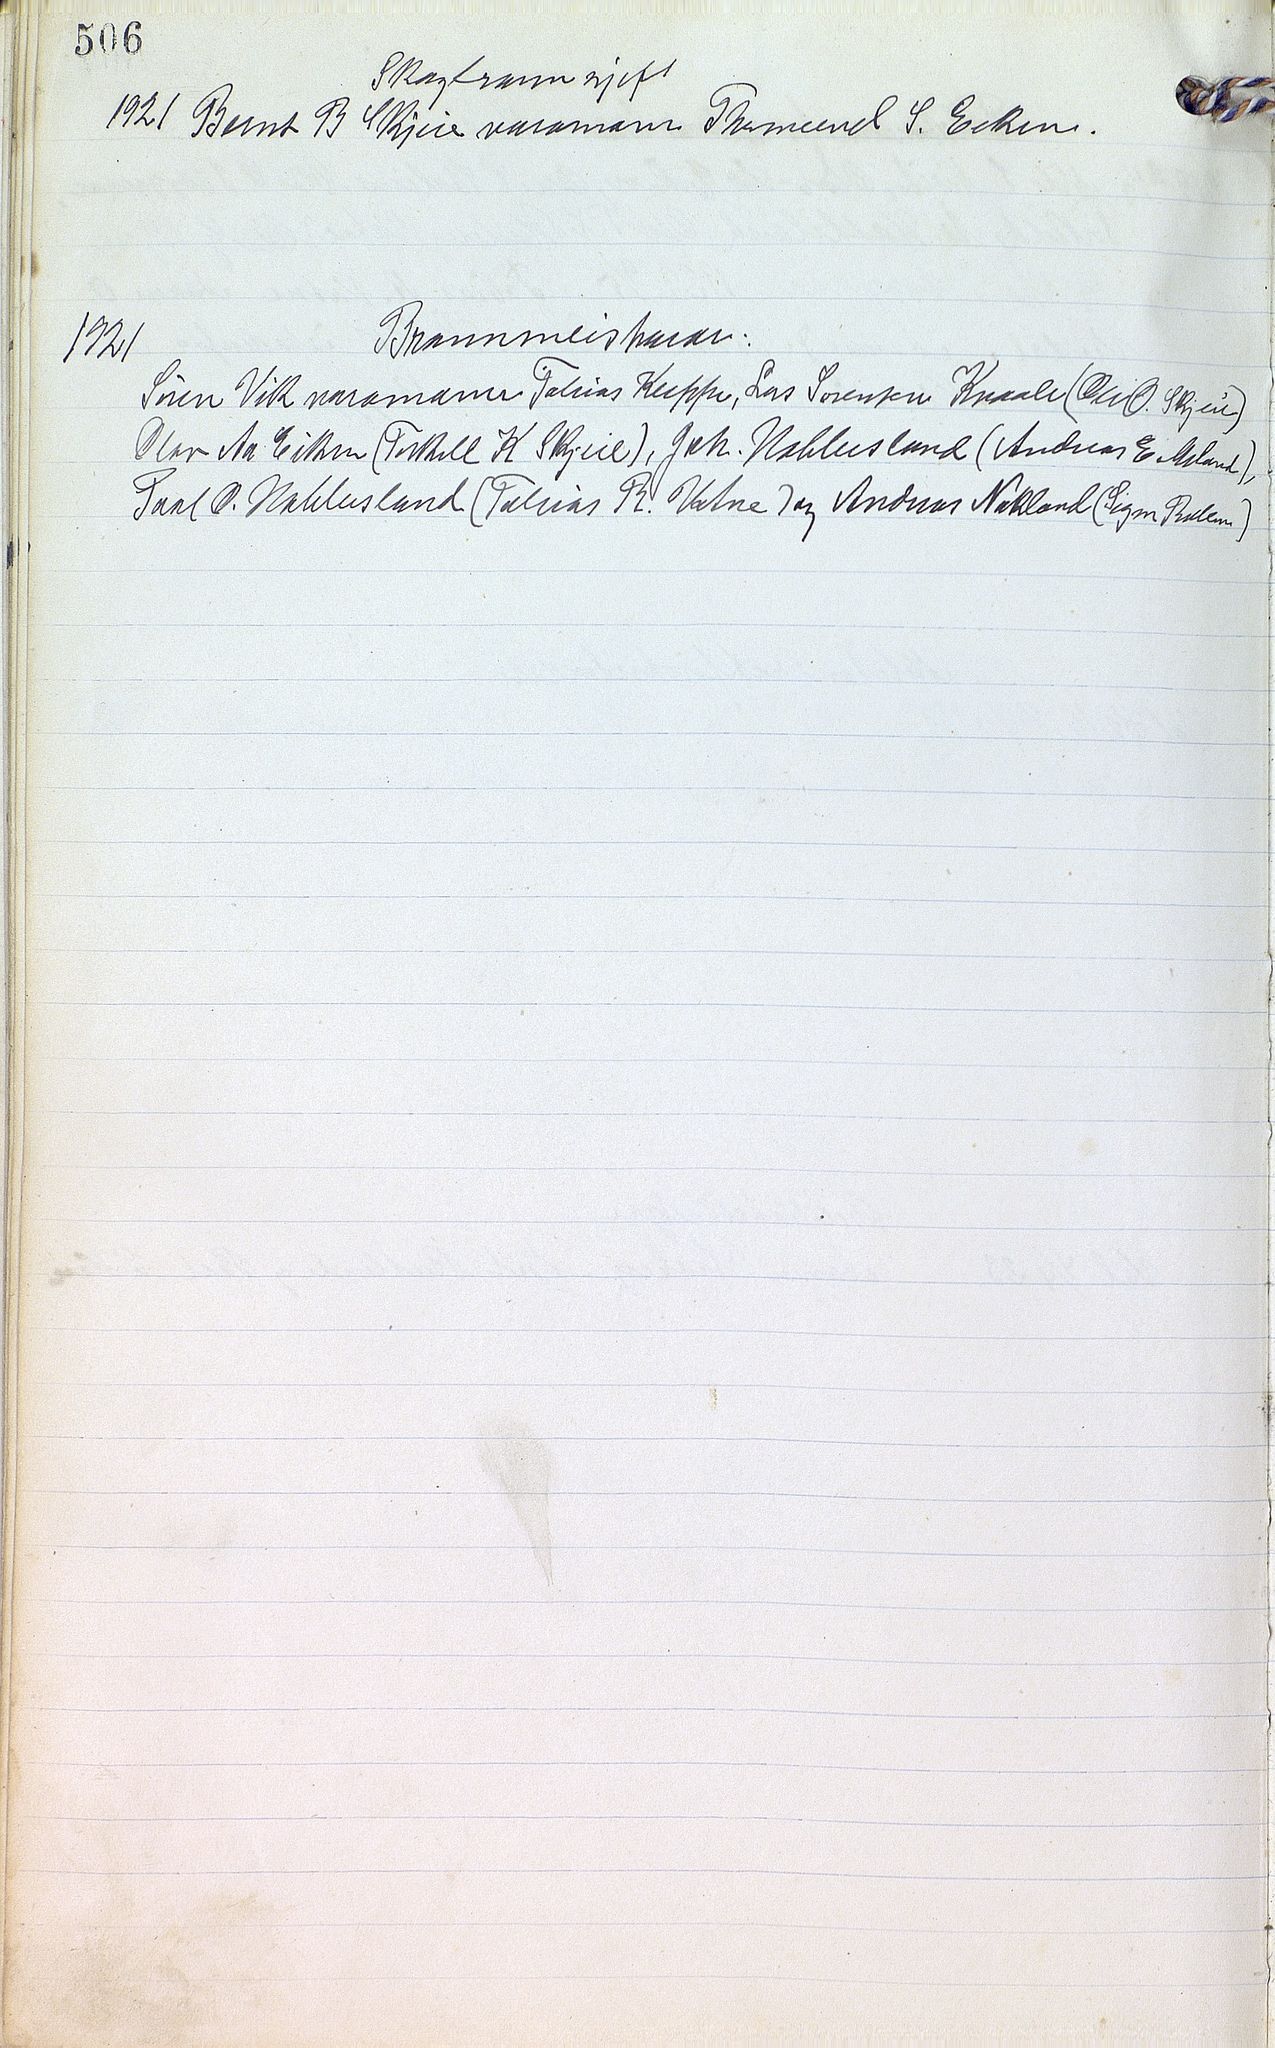 506
Skogbrannsjef
1921 Bernt B Skjeie varamann Thormund S. Eiken.
1921 Brannmeistarar:
Sören Vik varamann Tobias Kuppe, Lars Sorensen Kvaale (Ole O. Skjeie)
Olav Aa Eiken (Torkell K Skjeie), Joh. Nakkusland (Andreas E. Meland),
Paal O. Nakkusland (Tobias R. Vatne) og Andreas Nakland (Sigm